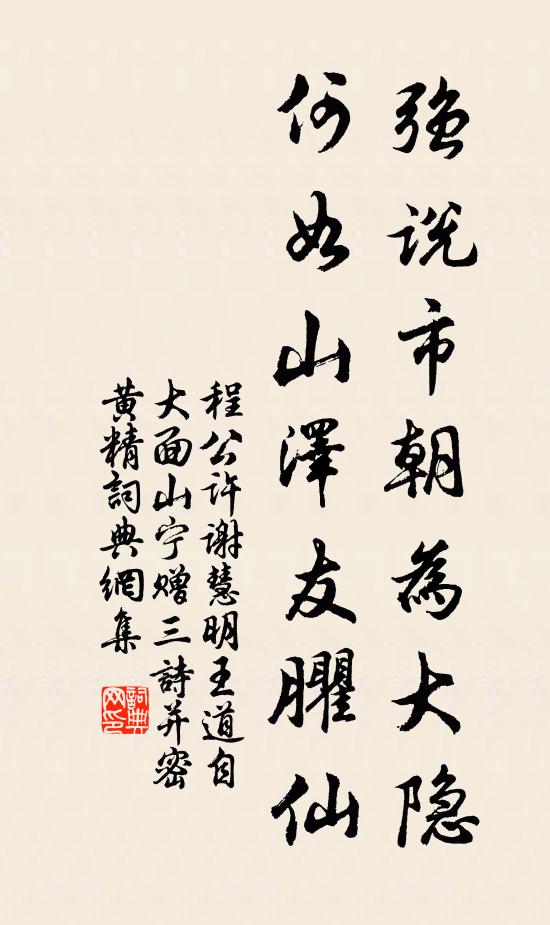 强说市朝为大隐
何如山澤友臞仙
程公许谢慧明王道自
大面山宁赠三詩并密
黄精詞典網集
詞典网印